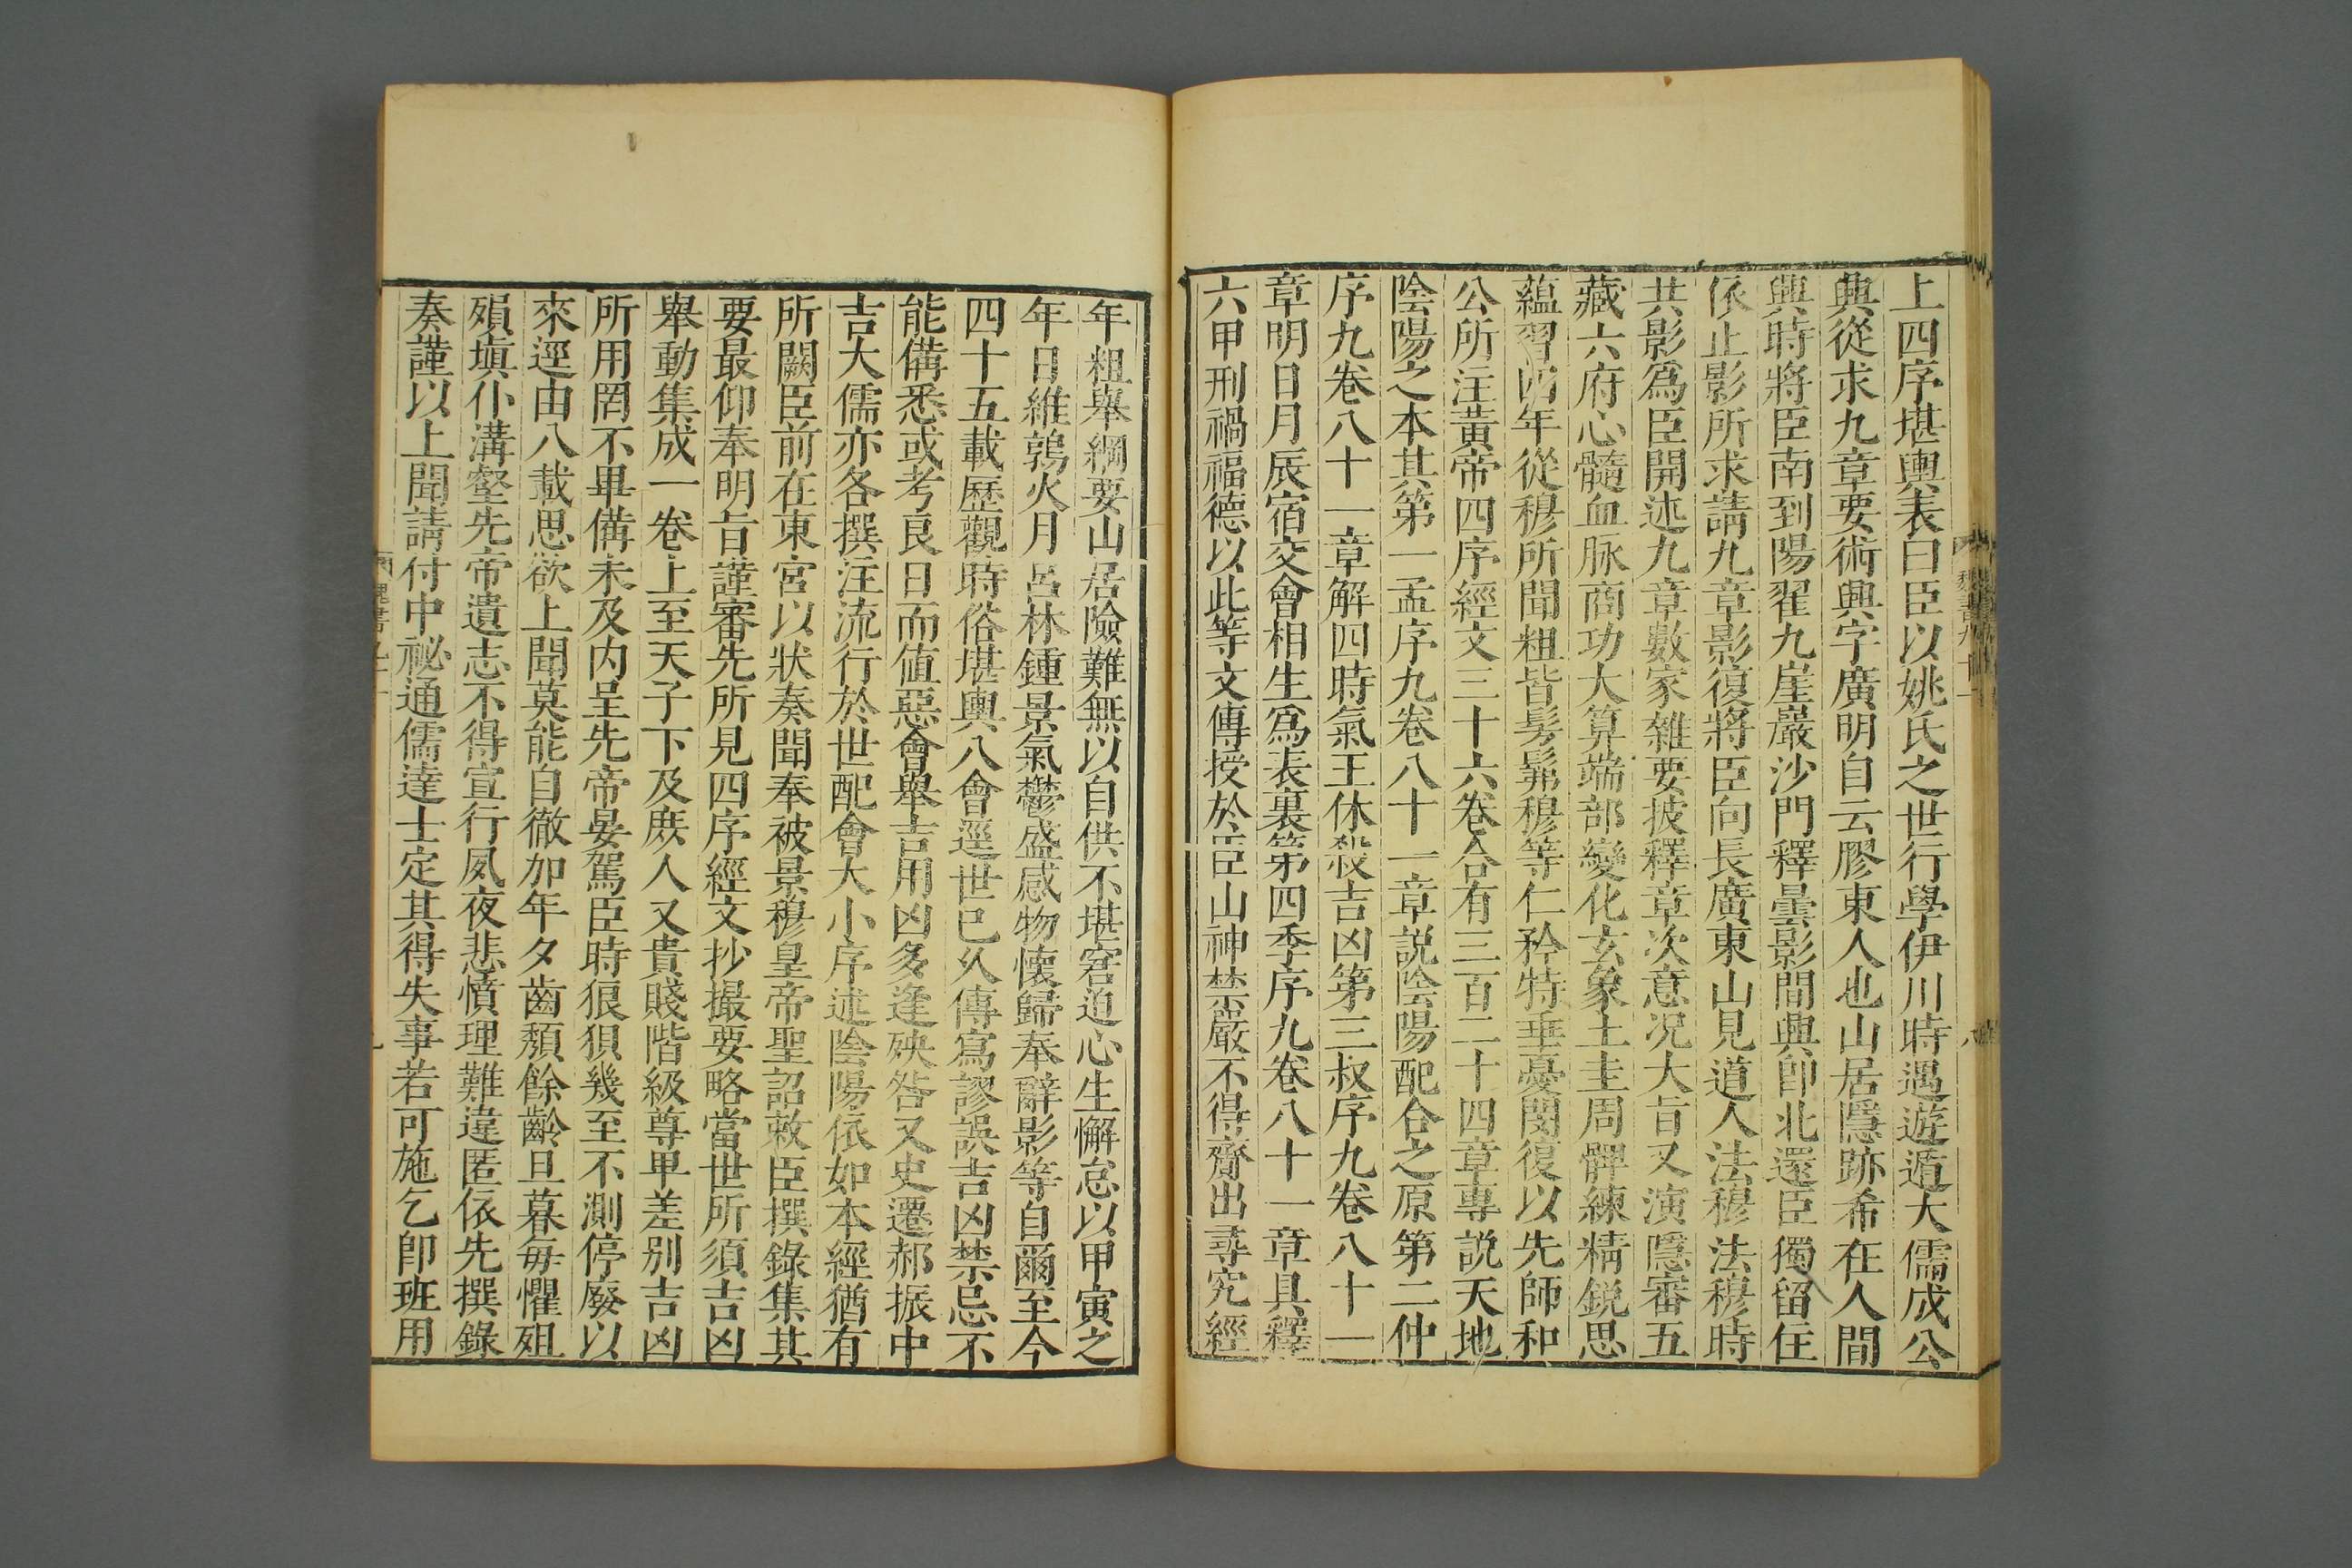 上四序堪輿表曰臣以姚氏之世行學伊川時遇遊遁大儒成公
興從求九章要術興字廣明自云膠東人也山居隱跡希在人間
興時將臣南到陽翟九崖巖沙門釋曇影間興卽北還臣獨留住
依止影所求請九章影復將臣向長廣東山見道人法穆法穆時
共影爲臣開述九章數家雜要披釋章次意況大旨又演隱審五
藏六府心髓血脉商功大算端部變化玄象土圭周髀練精銳思
蘊習四年從穆所聞粗皆髣髴穆等仁矜特垂憂閔復以先師和
公所注黃帝四序經文三十六卷合有三百二十四章專說天地
陰陽之本其第一孟序九卷八十一章說陰陽配合之原第二仲
序九卷八十一章解四時氣王休殺吉凶第三叔序九卷八十一
章明日月辰宿交會相生爲表裏第四季序九卷八十一章具釋
六甲刑禍福德以此等文傳授於臣山神禁嚴不得齎出尋究經
年粗舉綱要山居險難無以自供不堪窘迫心生懈怠以甲寅之
年日維鶉火月呂林鍾景氣鬱盛感物懷歸奉辭影等自爾至今
四十五載歷觀時俗堪輿八會逕世已久傳寫謬誤吉凶禁忌不
能備悉或考良日而値惡會舉吉用凶多逢殃咎又史遷郝振中
吉大儒亦各撰注流行於世配會大小序述陰陽依如本經猶有
所闕臣前在東宮以狀奏聞奉被景穆皇帝聖詔敕臣撰錄集其
要最仰奉明旨謹審先所見四序經文抄撮要略當世所須吉凶
舉動集成一卷上至天子下及庶人又貴賤階級尊卑差別吉凶
所用罔不畢備未及內呈先帝晏駕臣時狼狽幾至不測停廢以
來逕由八載思欲上聞莫能自徹加年夕齒頹餘齡旦暮每懼殂
殞塡仆溝壑先帝遺志不得宣行夙夜悲憤理難違匿依先撰錄
奏謹以上聞請付中祕通儒達士定其得失事若可施乞卽班用